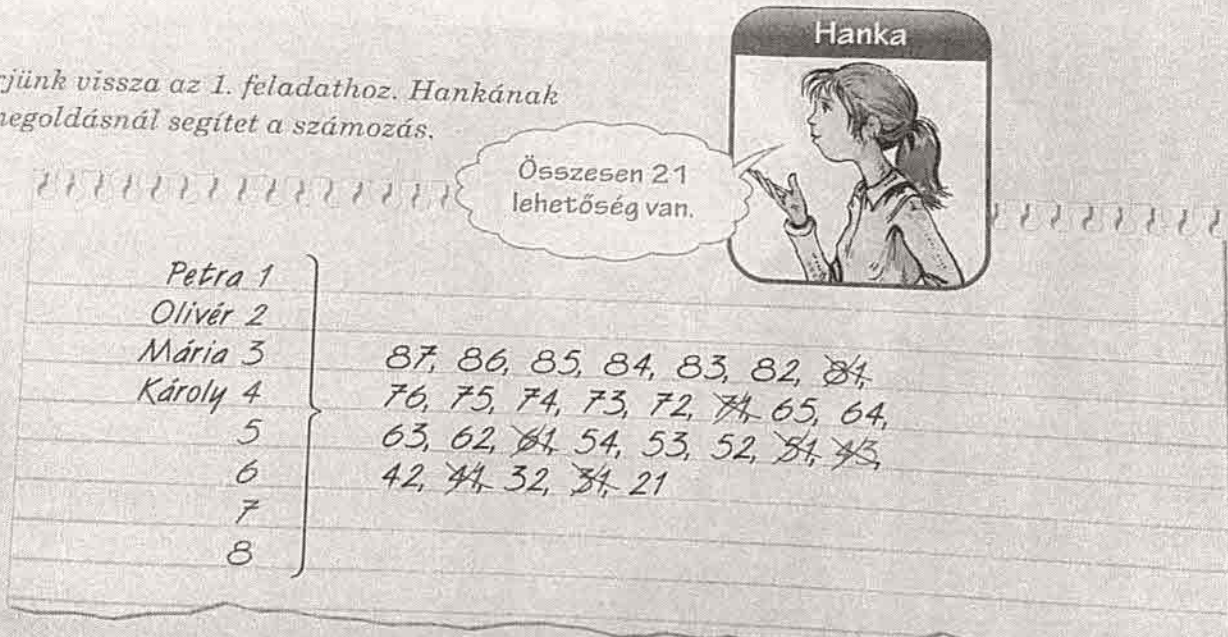 Hanka
rjünk vissza az 1. feladathoz. Hankának
megoldásnál segítet a számozás.
Összesen 21
lehetőség van.
Petra 1
Olivér 2
Mária 3
Károly 4
5
6
7
8
87, 86, 85, 84, 83, 82, 81,
76, 75, 74, 73, 72, 71, 65, 64,
63, 62, 61, 54, 53, 52, 51, 43,
42, 41, 32, 31, 21